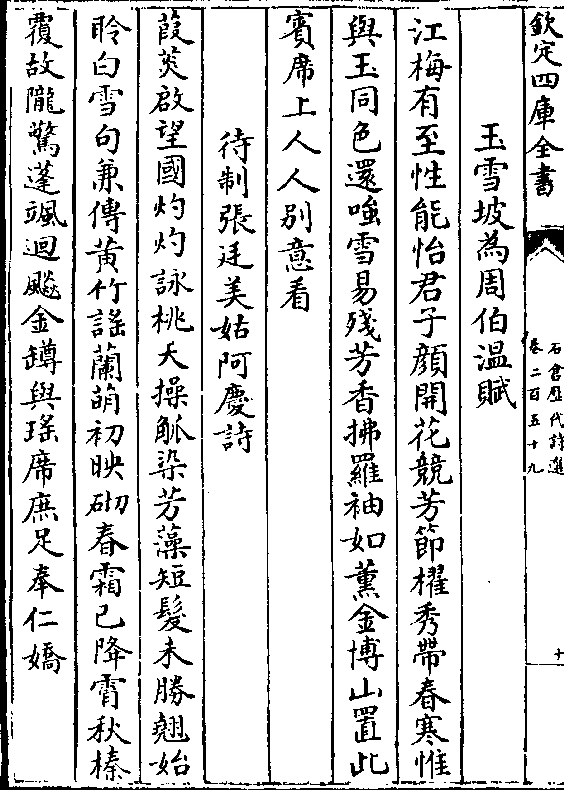 欽定四庫全書
石倉歷代詩選
卷二百五十九
十
玉雪坡為周伯温賦
江梅有至性能怡君子顔開花競芳節櫂秀帶春寒惟
與玉同色還嗤雪易殘芳香拂羅袖如薰金博山置此
賓席上人人别意看
待制張廷美姑阿慶詩
葭莢啟望國灼灼詠桃夭操觚染芳藻短髮未勝翹始
聆白雪句兼傳黄竹謡蘭萌初映砌春霜已降霄秋榛
覆故隴驚蓬颯迴飈金罇與瑶席庶足奉仁嬌